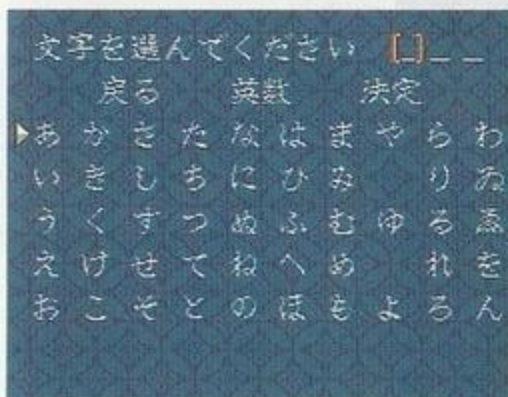 文字を選んでください [_]_ _
戻る 英数 決定
あ か さ た な は ま や ら わ
い き し ち に ひ み り ゐ
う く す つ ぬ ふ む ゆ る ゑ
え け せ て ね へ め れ を
お こ そ と の ほ も よ ろ ん